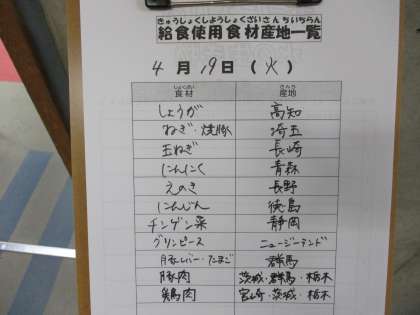 きゅうしょくしようしょくざいさんちいちらん
給食使用食材産地一覧
4月19日(火)
しょくざい さんち
食材 産地
しょうが 高知
ねぎ・焼豚 埼玉
玉ねぎ 長崎
にんにく 青森
えのき 長野
にんじん 徳島
チンゲン菜 静岡
グリンピース ニュージーランド
豚レバー・たまご 群馬
豚肉 茨城・群馬・栃木
鶏肉 宮崎・茨城・栃木